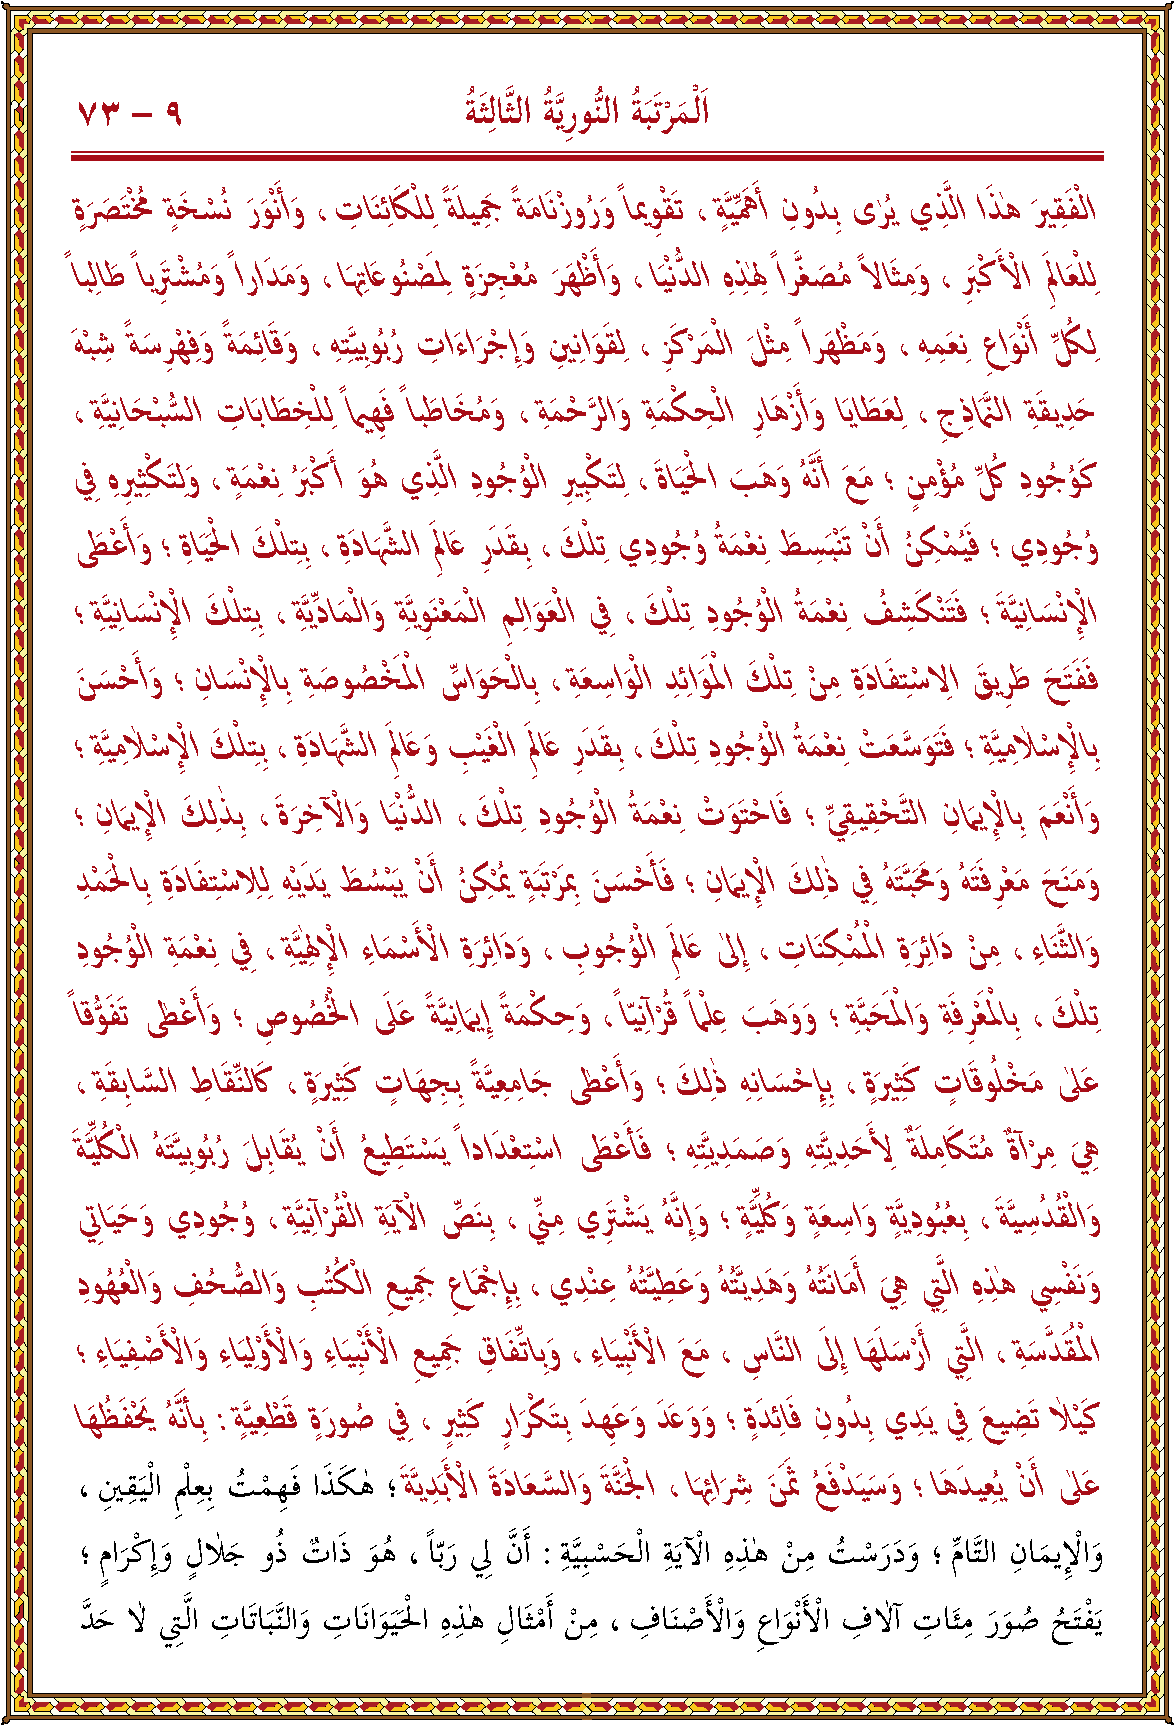 اَلْمَرْتَبَةُ النُّورِيَّةُ الثَّالِثَةُ ٩ – ٧٣
الْفَقِيرَ هٰذَا الَّذِي يُرٰى بِدُونِ أَهَمِّيَّةٍ ، تَقْوِيماً وَرُوزْنَامَةً جَمِيلَةً لِلْكَائِنَاتِ ، وَأَنْوَرَ نُسْخَةٍ مُخْتَصَرَةٍ
لِلْعَالَمِ الْأَكْبَرِ ، وَمِثَالاً مُصَغَّراً لِهٰذِهِ الدُّنْيَا ، وَأَظْهَرَ مُعْجِزَةٍ لِمَصْنُوعَاتِهَا ، وَمَدَاراً وَمُشْتَرِياً طَالِباً
لِكُلِّ أَنْوَاعِ نِعَمِهِ ، وَمَظْهَراً مِثْلَ الْمَرْكَزِ ، لِقَوَانِينِ وَإِجْرَاءَاتِ رُبُوبِيَّتِهِ ، وَقَائِمَةً وَفِهْرِسَةً شِبْهَ
حَدِيقَةِ النَّمَاذِجِ ، لِعَطَايَا وَأَزْهَارِ الْحِكْمَةِ وَالرَّحْمَةِ ، وَمُخَاطَباً فَهِيماً لِلْخِطَابَاتِ السُّبْحَانِيَّةِ ،
كَوُجُودِ كُلِّ مُؤْمِنٍ ؛ مَعَ أَنَّهُ وَهَبَ الْحَيَاةَ ، لِتَكْبِيرِ الْوُجُودِ الَّذِي هُوَ أَكْبَرُ نِعْمَةٍ ، وَلِتَكْثِيرِهِ فِي
وُجُودِي ؛ فَيُمْكِنُ أَنْ تَنْبَسِطَ نِعْمَةُ وُجُودِي تِلْكَ ، بِقَدَرِ عَالَمِ الشَّهَادَةِ ، بِتِلْكَ الْحَيَاةِ ؛ وَأَعْطَى
الْإِنْسَانِيَّةَ ؛ فَتَنْكَشِفُ نِعْمَةُ الْوُجُودِ تِلْكَ ، فِي الْعَوَالِمِ الْمَعْنَوِيَّةِ وَالْمَادِّيَّةِ ، بِتِلْكَ الْإِنْسَانِيَّةِ ؛
فَفَتَحَ طَرِيقَ الِاسْتِفَادَةِ مِنْ تِلْكَ الْمَوَائِدِ الْوَاسِعَةِ ، بِالْحَوَاسِّ الْمَخْصُوصَةِ بِالْإِنْسَانِ ؛ وَأَحْسَنَ
بِالْإِسْلَامِيَّةِ ؛ فَتَوَسَّعَتْ نِعْمَةُ الْوُجُودِ تِلْكَ ، بِقَدَرِ عَالَمِ الْغَيْبِ وَعَالَمِ الشَّهَادَةِ ، بِتِلْكَ الْإِسْلَامِيَّةِ ؛
وَأَنْعَمَ بِالْإِيمَانِ التَّحْقِيقِيِّ ؛ فَاحْتَوَتْ نِعْمَةُ الْوُجُودِ تِلْكَ ، الدُّنْيَا وَالْآخِرَةَ ، بِذٰلِكَ الْإِيمَانِ ؛
وَمَنَحَ مَعْرِفَتَهُ وَمَحَبَّتَهُ فِي ذٰلِكَ الْإِيمَانِ ؛ فَأَحْسَنَ بِمَرْتَبَةٍ يُمْكِنُ أَنْ يَبْسُطَ يَدَيْهِ لِلِاسْتِفَادَةِ بِالْحَمْدِ
وَالثَّنَاءِ ، مِنْ دَائِرَةِ الْمُمْكِنَاتِ ، إِلٰى عَالَمِ الْوُجُوبِ ، وَدَائِرَةِ الْأَسْمَاءِ الْإِلٰهِيَّةِ ، فِي نِعْمَةِ الْوُجُودِ
تِلْكَ ، بِالْمَعْرِفَةِ وَالْمَحَبَّةِ ؛ ووهَبَ عِلْماً قُرْآنِيّاً ، وَحِكْمَةً إِيمَانِيَّةً عَلَى الْخُصُوصِ ؛ وَأَعْطٰى تَفَوُّقاً
عَلٰى مَخْلُوقَاتٍ كَثِيرَةٍ ، بِإِحْسَانِهِ ذٰلِكَ ؛ وَأَعْطٰى جَامِعِيَّةً بِجِهَاتٍ كَثِيرَةٍ ، كَالنِّقَاطِ السَّابِقَةِ ،
هِيَ مِرْآةٌ مُتَكَامِلَةٌ لِأَحَدِيَّتِهِ وَصَمَدِيَّتِهِ ؛ فَأَعْطَى اسْتِعْدَاداً يَسْتَطِيعُ أَنْ يُقَابِلَ رُبُوبِيَّتَهُ الْكُلِّيَّةَ
وَالْقُدُسِيَّةَ ، بِعُبُودِيَّةٍ وَاسِعَةٍ وَكُلِّيَّةٍ ؛ وَإِنَّهُ يَشْتَرِي مِنِّي ، بِنَصِّ الْآيَةِ الْقُرْآنِيَّةِ ، وُجُودِي وَحَيَاتِي
وَنَفْسِي هٰذِهِ الَّتِي هِيَ أَمَانَتُهُ وَهَدِيَّتُهُ وَعَطِيَّتُهُ عِنْدِي ، بِإِجْمَاعِ جَمِيعِ الْكُتُبِ وَالصُّحُفِ وَالْعُهُودِ
الْمُقَدَّسَةِ ، الَّتِي أَرْسَلَهَا إِلَى النَّاسِ ، مَعَ الْأَنْبِيَاءِ ، وَبِاتِّفَاقِ جَمِيعِ الْأَنْبِيَاءِ وَالْأَوْلِيَاءِ وَالْأَصْفِيَاءِ ؛
كَيْلَا تَضِيعَ فِي يَدِي بِدُونِ فَائِدَةٍ ؛ وَوَعَدَ وَعَهِدَ بِتَكْرَارٍ كَثِيرٍ ، فِي صُورَةٍ قَطْعِيَّةٍ : بِأَنَّهُ يَحْفَظُهَا
عَلٰى أَنْ يُعِيدَهَا ؛ وَسَيَدْفَعُ ثَمَنَ شِرَائِهَا ، الْجَنَّةَ وَالسَّعَادَةَ الْأَبَدِيَّةَ ؛ هٰكَذَا فَهِمْتُ بِعِلْمِ الْيَقِينِ ،
وَالْإِيمَانِ التَّامِّ ؛ وَدَرَسْتُ مِنْ هٰذِهِ الْآيَةِ الْحَسْبِيَّةِ : أَنَّ لِي رَبّاً ، هُوَ ذَاتٌ ذُو جَلَالٍ وَإِكْرَامٍ ؛
يَفْتَحُ صُوَرَ مِئَاتِ آلَافِ الْأَنْوَاعِ وَالْأَصْنَافِ ، مِنْ أَمْثَالِ هٰذِهِ الْحَيَوَانَاتِ وَالنَّبَاتَاتِ الَّتِي لَا حَدَّ